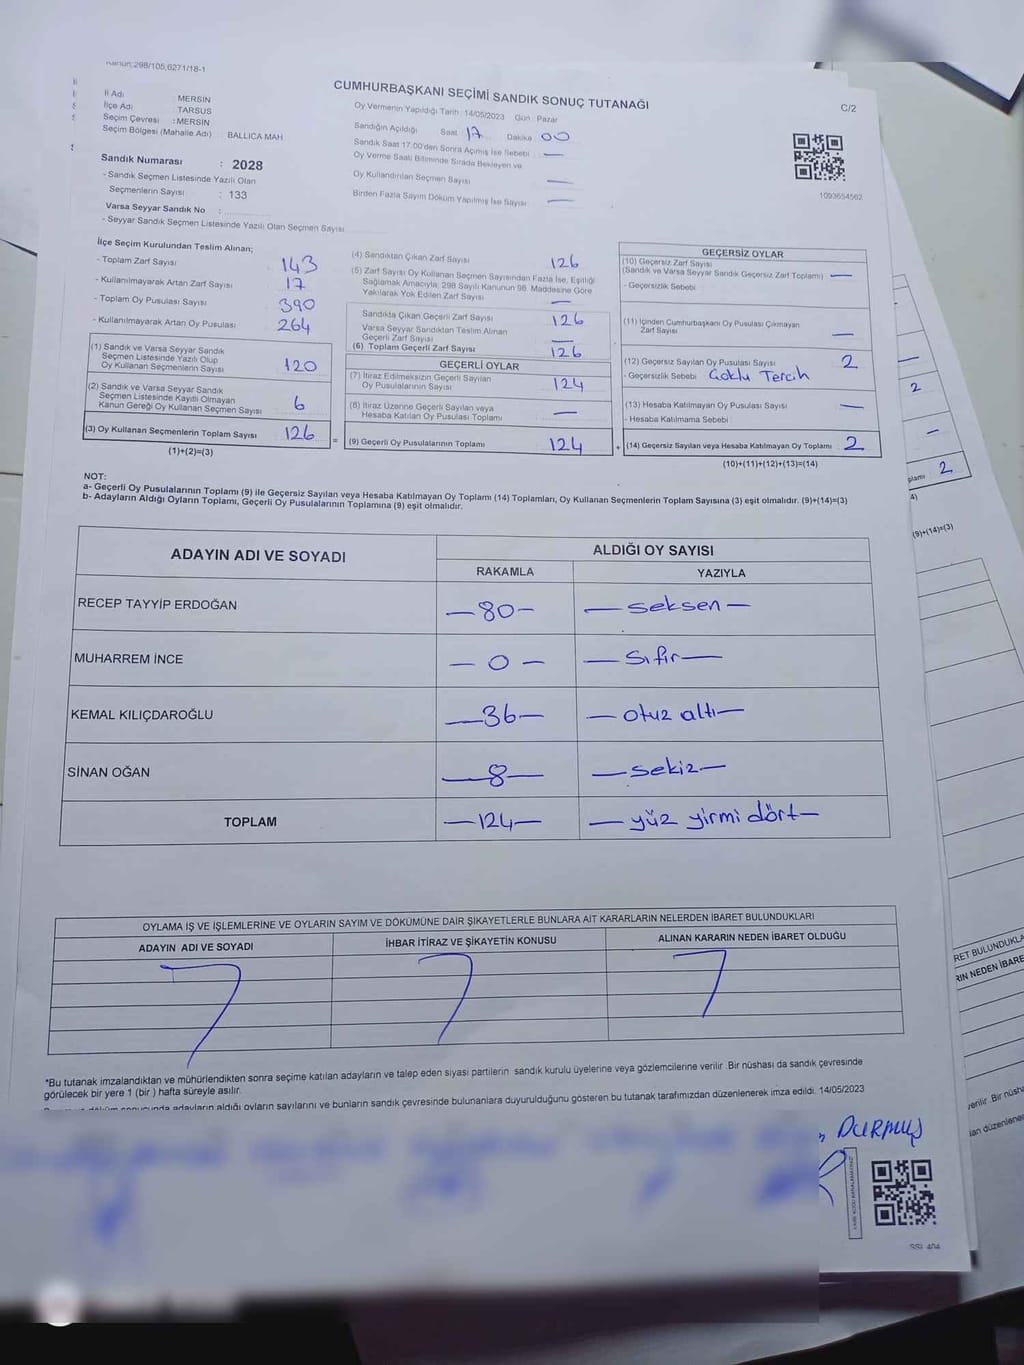 Kanun:298/105,6271/18-1
CUMHURBAŞKANI SEÇİMİ SANDIK SONUÇ TUTANAĞI
C/2
İl Adı : MERSİN
İlçe Adı : TARSUS
Seçim Çevresi : MERSİN
Seçim Bölgesi (Mahalle Adı) : BALLICA MAH
Oy Vermenin Yapıldığı Tarih : 14/05/2023 Gün : Pazar
Sandığın Açıldığı Saat 17 Dakika 00
Sandık Saat 17.00'den Sonra Açılmış İse Sebebi —
Oy Verme Saati Bitiminde Sırada Bekleyen ve
Oy Kullandırılan Seçmen Sayısı —
Birden Fazla Sayım Döküm Yapılmış İse Sayısı —
1093654562
Sandık Numarası : 2028
- Sandık Seçmen Listesinde Yazılı Olan
Seçmenlerin Sayısı : 133
Varsa Seyyar Sandık No :
- Seyyar Sandık Seçmen Listesinde Yazılı Olan Seçmen Sayısı
İlçe Seçim Kurulundan Teslim Alınan;
- Toplam Zarf Sayısı 143
- Kullanılmayarak Artan Zarf Sayısı 17
- Toplam Oy Pusulası Sayısı 390
- Kullanılmayarak Artan Oy Pusulası 264
(1) Sandık ve Varsa Seyyar Sandık
Seçmen Listesinde Yazılı Olup
Oy Kullanan Seçmenlerin Sayısı 120
(2) Sandık ve Varsa Seyyar Sandık
Seçmen Listesinde Kayıtlı Olmayan
Kanun Gereği Oy Kullanan Seçmen Sayısı 6
(3) Oy Kullanan Seçmenlerin Toplam Sayısı 126
(1)+(2)=(3)
=
(4) Sandıktan Çıkan Zarf Sayısı 126
(5) Zarf Sayısı Oy Kullanan Seçmen Sayısından Fazla İse, Eşitliği
Sağlamak Amacıyla; 298 Sayılı Kanunun 98. Maddesine Göre
Yakılarak Yok Edilen Zarf Sayısı —
Sandıkta Çıkan Geçerli Zarf Sayısı 126
Varsa Seyyar Sandıktan Teslim Alınan
Geçerli Zarf Sayısı —
(6) Toplam Geçerli Zarf Sayısı 126
GEÇERLİ OYLAR
(7) İtiraz Edilmeksizin Geçerli Sayılan
Oy Pusulalarının Sayısı 124
(8) İtiraz Üzerine Geçerli Sayılan veya
Hesaba Katılan Oy Pusulası Toplamı —
(9) Geçerli Oy Pusulalarının Toplamı 124
+
GEÇERSİZ OYLAR
(10) Geçersiz Zarf Sayısı
(Sandık ve Varsa Seyyar Sandık Geçersiz Zarf Toplamı) —
- Geçersizlik Sebebi
(11) İçinden Cumhurbaşkanı Oy Pusulası Çıkmayan
Zarf Sayısı —
(12) Geçersiz Sayılan Oy Pusulası Sayısı 2
- Geçersizlik Sebebi Çoklu Tercih
(13) Hesaba Katılmayan Oy Pusulası Sayısı —
- Hesaba Katılmama Sebebi
(14) Geçersiz Sayılan veya Hesaba Katılmayan Oy Toplamı 2
(10)+(11)+(12)+(13)=(14)
NOT:
a- Geçerli Oy Pusulalarının Toplamı (9) ile Geçersiz Sayılan veya Hesaba Katılmayan Oy Toplamı (14) Toplamları, Oy Kullanan Seçmenlerin Toplam Sayısına (3) eşit olmalıdır. (9)+(14)=(3)
b- Adayların Aldığı Oyların Toplamı, Geçerli Oy Pusulalarının Toplamına (9) eşit olmalıdır.
ADAYIN ADI VE SOYADI ALDIĞI OY SAYISI
RAKAMLA YAZIYLA
RECEP TAYYİP ERDOĞAN —80— —seksen—
MUHARREM İNCE —0— —sıfır—
KEMAL KILIÇDAROĞLU —36— —otuz altı—
SİNAN OĞAN —8— —sekiz—
TOPLAM —124— —yüz yirmi dört—
OYLAMA İŞ VE İŞLEMLERİNE VE OYLARIN SAYIM VE DÖKÜMÜNE DAİR ŞİKAYETLERLE BUNLARA AİT KARARLARIN NELERDEN İBARET BULUNDUKLARI
ADAYIN ADI VE SOYADI İHBAR İTİRAZ VE ŞİKAYETİN KONUSU ALINAN KARARIN NEDEN İBARET OLDUĞU
*Bu tutanak imzalandıktan ve mühürlendikten sonra seçime katılan adayların ve talep eden siyasi partilerin sandık kurulu üyelerine veya gözlemcilerine verilir .Bir nüshası da sandık çevresinde
görülecek bir yere 1 (bir ) hafta süreyle asılır.
sonucunda adayların aldığı oyların sayılarını ve bunların sandık çevresinde bulunanlara duyurulduğunu gösteren bu tutanak tarafımızdan düzenlenerek imza edildi. 14/05/2023
DURMUŞ
2
2
(9)+(14)=(3)
RET BULUNDUKLA
RIN NEDEN İBARE
verilir .Bir nüsh
dan düzenlene